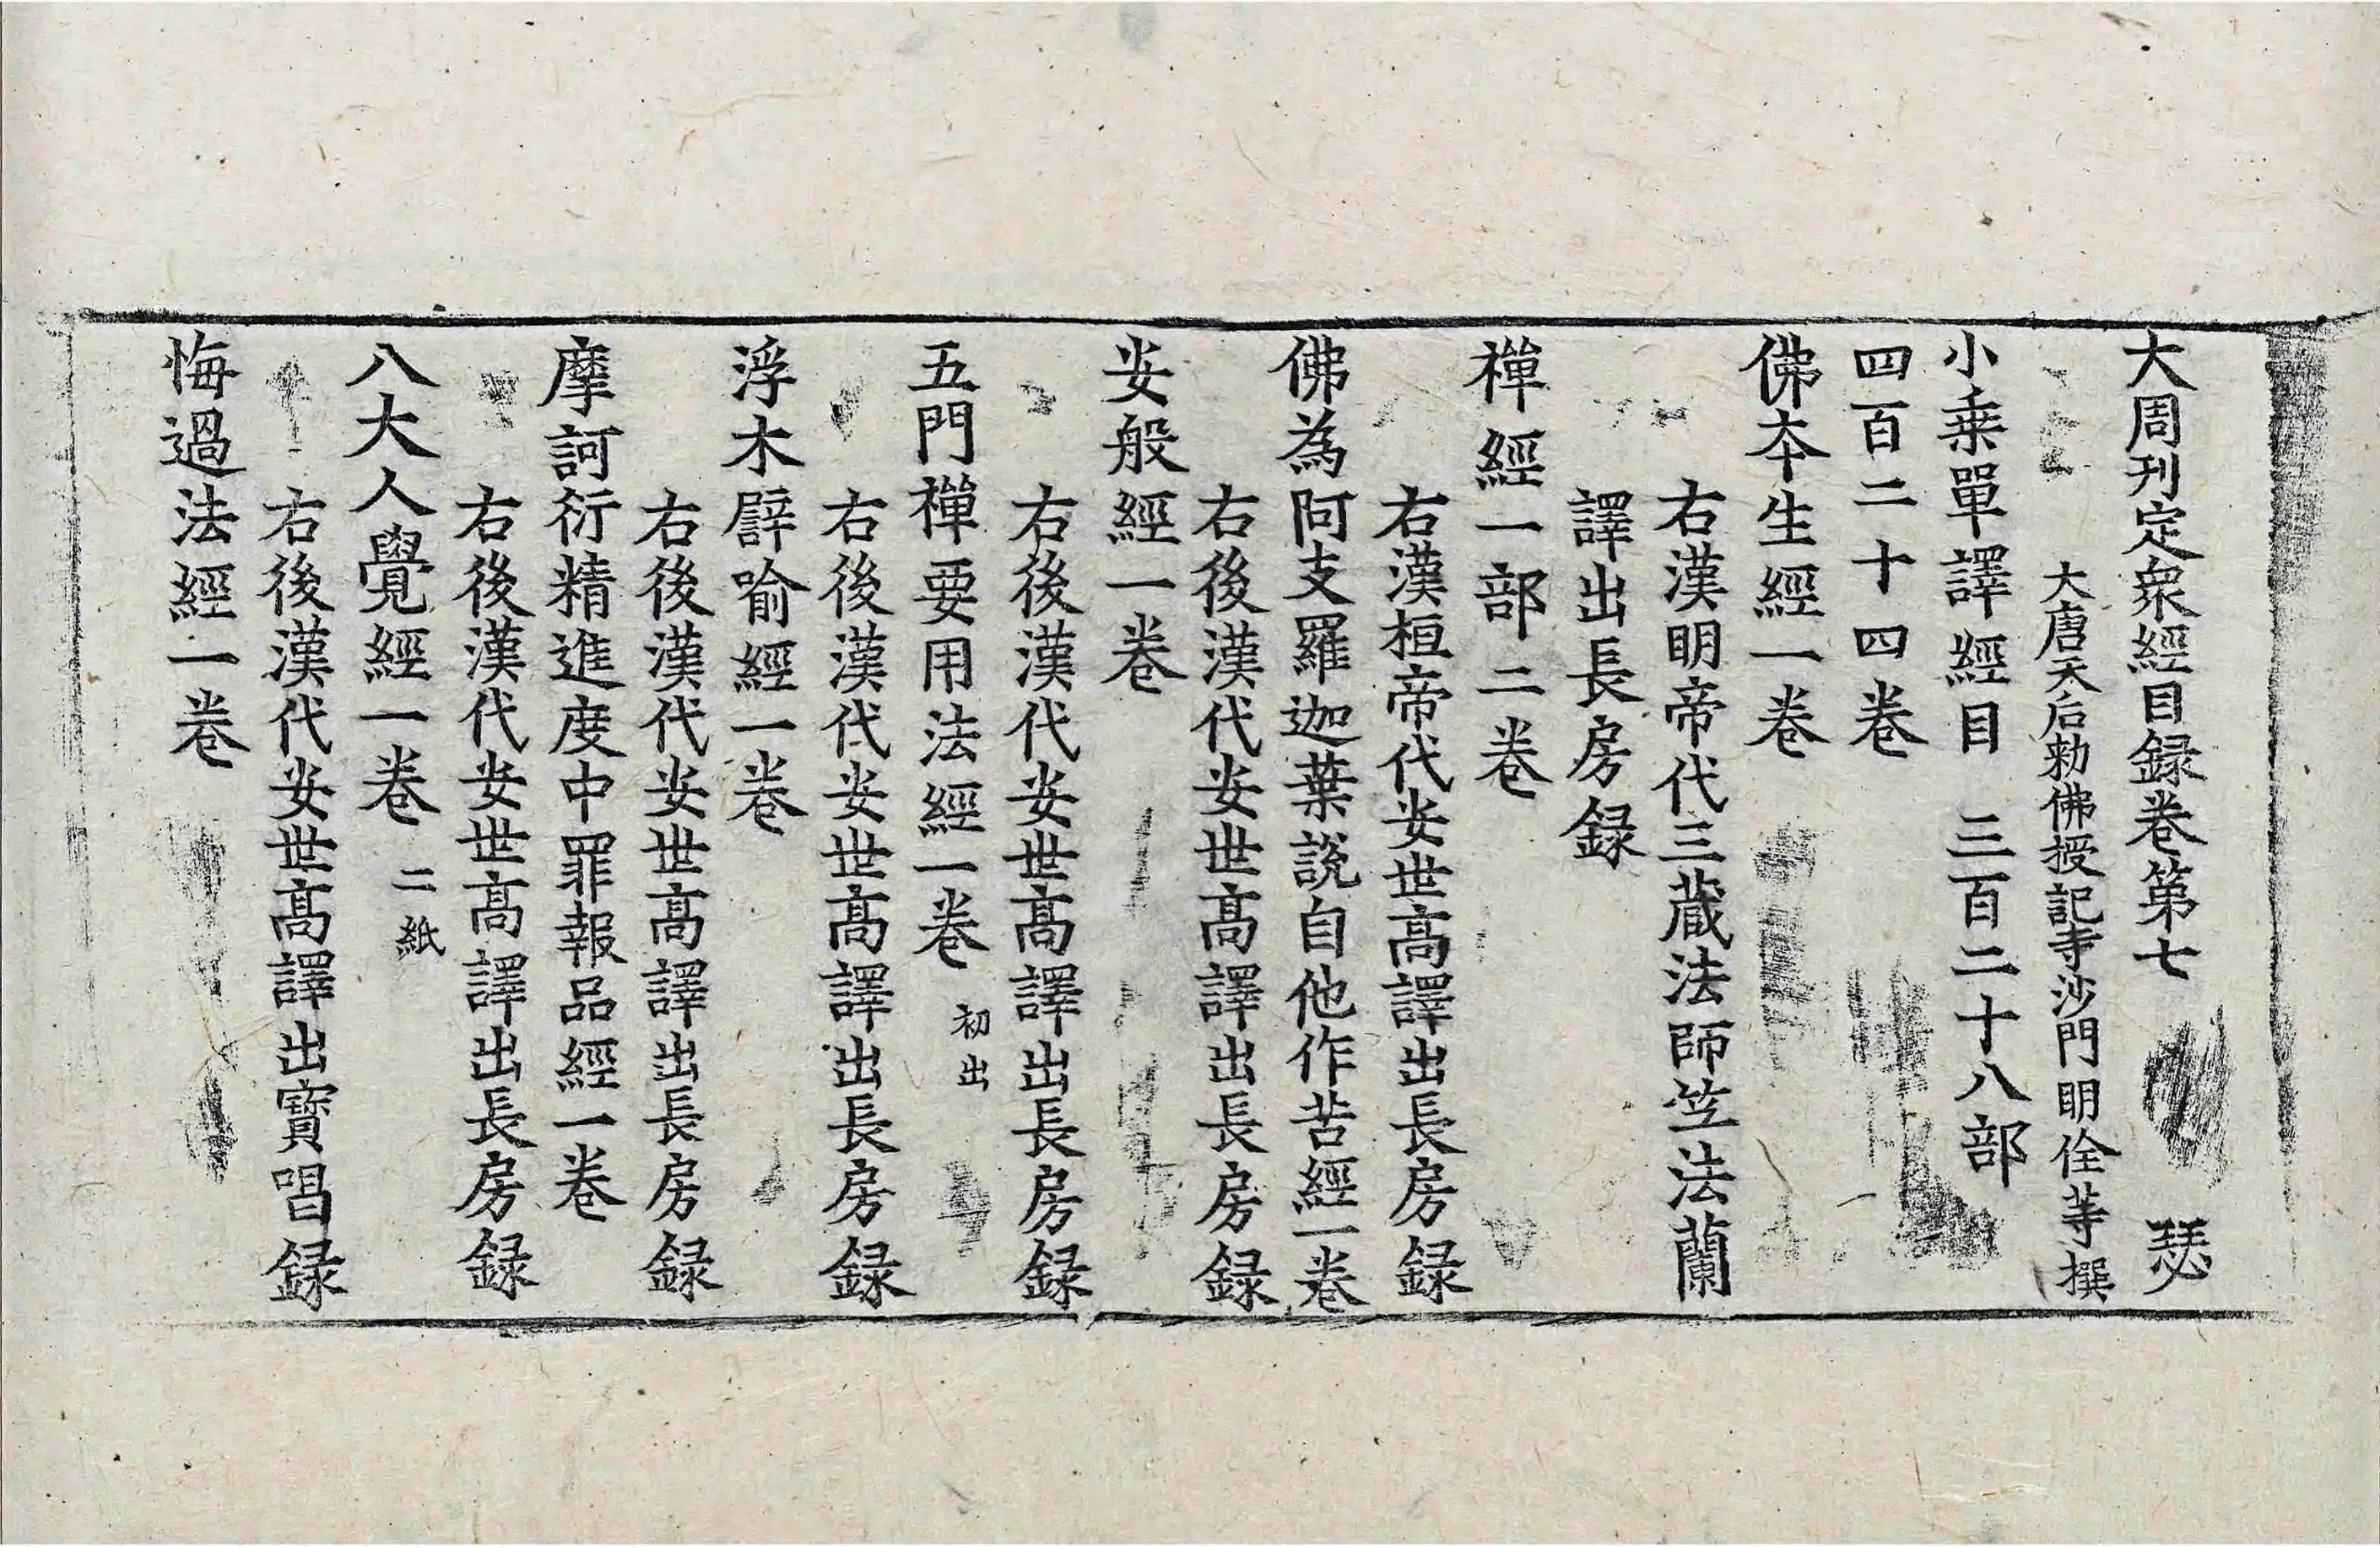 大周刊定衆經目録卷第七 瑟
大唐天后勑佛授記寺沙門明佺等撰
小乗單譯經目 三百二十八部
四百二十四卷
佛本生經一卷
右漢明帝代三蔵法師竺法蘭
譯出長房録
禪經一部二卷
右漢桓帝代安世高譯出長房録
佛為阿支羅迦葉說自他作苦經一卷
右後漢代安世高譯出長房録
安般經一卷
右後漢代安世高譯出長房録
五門禪要用法經一卷 初出
右後漢代安世高譯出長房録
浮木辟喻經一卷
右後漢代安世高譯出長房録
摩訶衍精進度中罪報品經一卷
右後漢代安世高譯出長房録
八大人覺經一卷 二紙
右後漢代安世高譯出寶唱録
悔過法經一卷